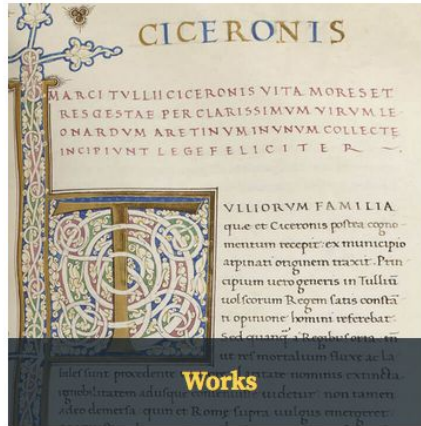 CICERONIS
MARCI TVLLII CICERONIS VITA MORES ET
RES GESTAE PER CLARISSIMVM VIRVM LE
ONARDVM ARETINVM IN VNVM COLLECTE
INCIPIVNT LEGE FELICITER
T
VLLIORVM FAMILIA
quæ et Ciceronis postea cogno
mentum recepit: ex municipio
arpinati originem traxit. Prin
cipium uero generis in Tulliū
uolscorum Regem satis constā
ti opinione homini referebat.
Sed quanq̄ a Regibus
ut res mortalium fluxe ac la
Works
nominis extincta
ignobilitatem adusque uidetur non tamen
adeo demersa quin et Rome supra uulgus emergeret